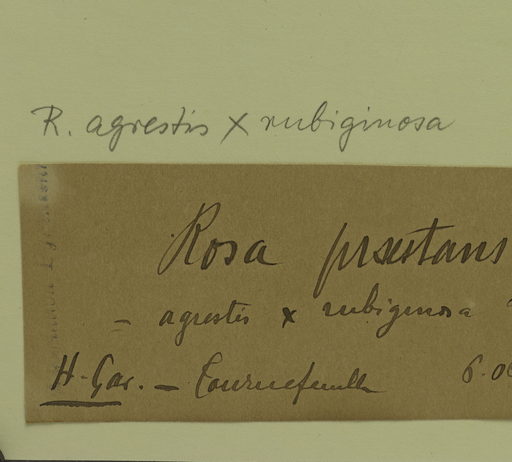 R. agrestis x rubiginosa
Rosa præstans
= agrestis x rubiginosa
H-Gar. - Tournefeuille
6. oc